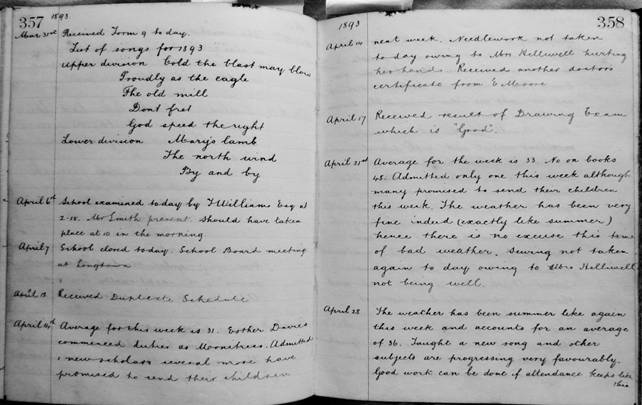 357
1893
Mar 23rd Received Form 9 to day.
List of songs for 1893
Upper division Cold the blast may blow
Proudly as the eagle
The old mill
Dont fret
God speed the right
Lower division Mary's lamb
The north wind
By and by
April 6th School examined to day by T Williams Esq at
2-15. Mr Smith present. Should have taken
place at 10 in the morning.
April 7 School closed to day. School Board meeting
at Longtown
April 13 Received Duplicate Schedule
April 14th Average for this week is 31. Esther Davies
commenced duties as Monitress. Admitted
2 new scholars several more have
promised to send their children
358
1893
April 14 next week. Needlework not taken
to day owing to Mrs Helliwell hurting
her hand. Received another doctors
certificate from E. Moore
April 17 Received result of Drawing Exam
which is "Good".
April 21st Average for the week is 33. No on books
45. Admitted only one this week although
many promised to send their children
this week. The weather has been very
fine indeed (exactly like summer)
hence there is no excuse this time
of bad weather. Sewing not taken
again to day owing to Mrs Helliwell
not being well.
April 28 The weather has been summer like again
this week and accounts for an average
of 36. Taught a new song and other
subjects are progressing very favourably.
Good work can be done if attendance keeps like
this